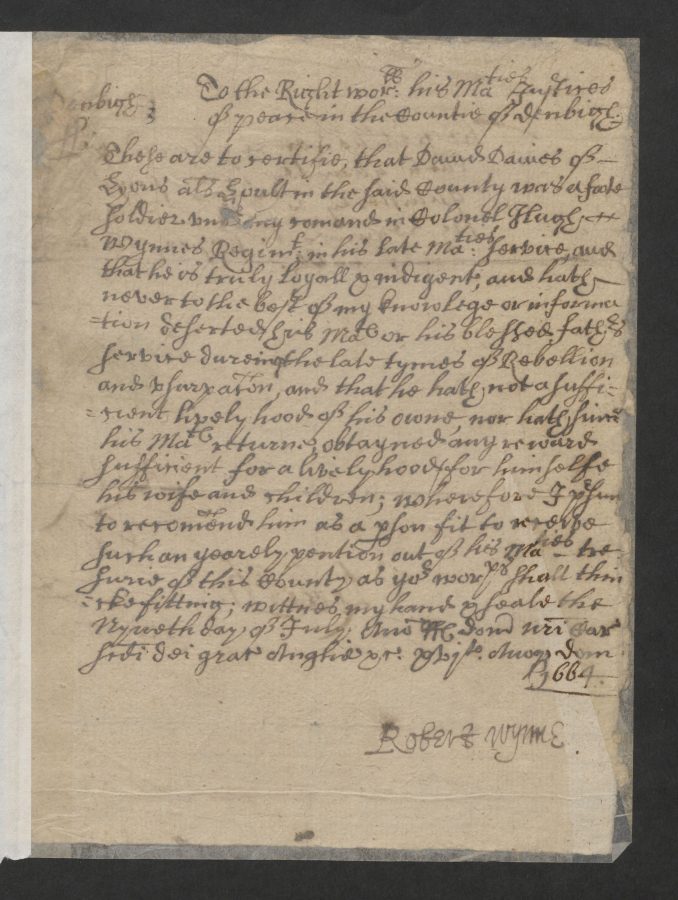 Denbigh;
ss.
To the Right worll: his Maties Justices
of peace in the Countie of Denbigh
These are to certifie, that David Davies of
Lyons als Hoult in the said County was a foote
soldier under my comand in Colonel Hugh
Wynnes Regimt: in his late Maties: service, and
that he is truly loyall & indigent, and hath
never to the best of my knowlege or informa
=tion deserted his Mats or his blessed fathrs
service dureing the late tymes of Rebellion
and Usurpacon, and that he hath not a suffi-
=cient lively hood of his owne, nor hath since
his Mats returne, obtayned any reward
sufficient for a livelyhood for himselfe
his wife and children; wherefore I psum
to recomend him as a pson fit to receive
such an yearely pention out of his Maties trea
surie of this County as yor worps shall thin
cke fitting; wittnes my hand & seale the
day of July, Anno RR. domi nri Car
sedi dei grac Anglie &c. xvjto. Anoq dom
1664.
Robert Wynne.